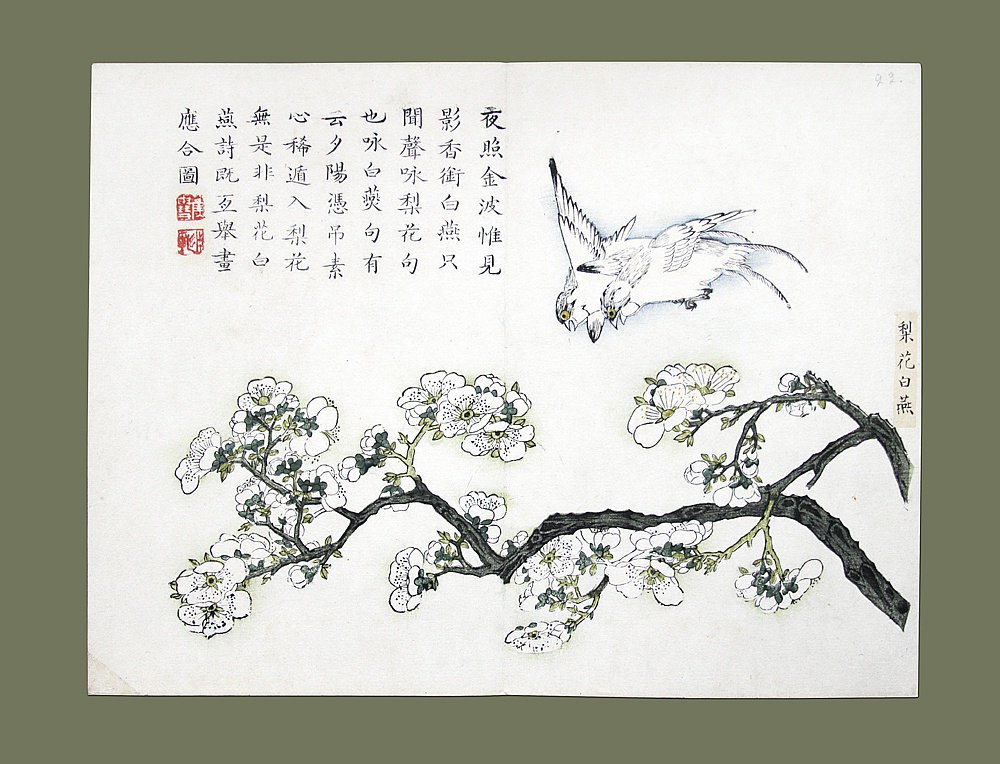 夜照金波惟見
影香銜白燕只
聞聲咏梨花句
也咏白燕句有
云夕陽憑吊素
心稀遁入梨花
無是非梨花白
燕詩既互舉畫
應合圖
梨花白燕